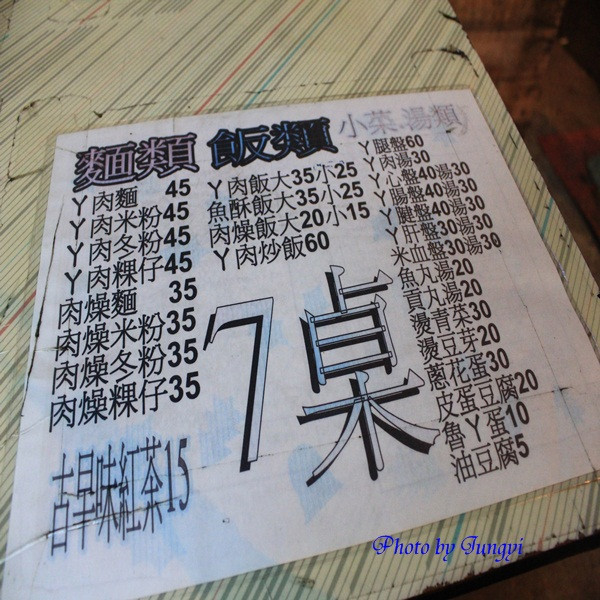 麵類
ㄚ肉麵 45
ㄚ肉米粉45
ㄚ肉冬粉45
ㄚ肉粿仔45
肉燥麵 35
肉燥米粉35
肉燥冬粉35
肉燥粿仔35
古早味紅茶15
飯類
ㄚ肉飯大35小25
魚酥飯大35小25
肉燥飯大20小15
ㄚ肉炒飯60
7桌
小菜.湯類
ㄚ腿盤60
ㄚ肉湯30
ㄚ心盤40湯30
ㄚ腸盤40湯30
ㄚ腱盤40湯30
ㄚ肝盤30湯30
米血盤30湯30
魚丸湯20
貢丸湯20
燙青菜30
燙豆芽20
蔥花蛋30
皮蛋豆腐20
魯ㄚ蛋10
油豆腐5
Photo by Jungyi